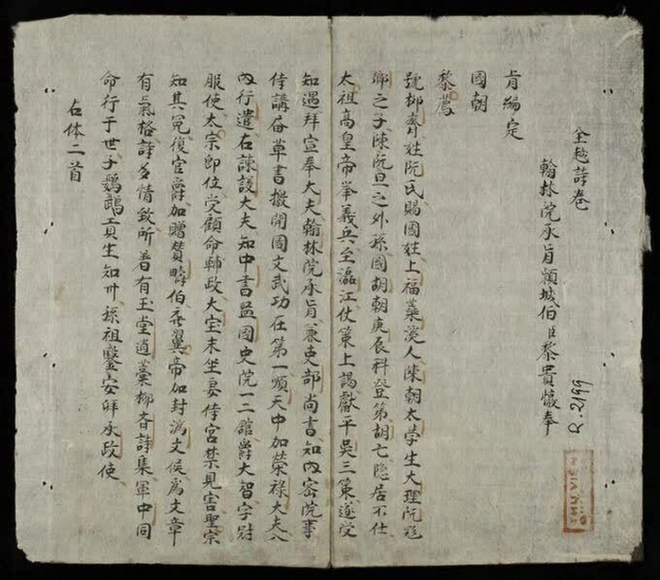 全越詩卷
翰林院承旨穎城伯臣黎貴惇奉
R.2199
旨編定
國朝
黎廌
號抑齋姓阮氏賜國姓上福蘂溪人陳朝太學生大理阮飛
卿之子陳阮旦之外孫國胡朝庚辰科登第胡亡隐居不仕
太祖高皇帝举義兵至瀘江仗策上謁獻平吳三策遂受
知遇拜宣奉大夫翰林院承旨兼吏部尚書知内密院事
侍講草書撥開國文武功在第一順天中加榮禄大夫入
内行遣右諫議大夫知中書監國史院一二舘爵大智字尉
服使太宗即位受顧命輔政大宝末坐妻侍宮禁見害聖宗
知其冤復官爵加贈贊疇伯翼帝加封济文侯為文章
有氣格詩多情致所著有玉堂遺藁抑斎詩集軍中同
命行于世子鸚鵡工生知州孫祖鑒安拜承政使
右体二首